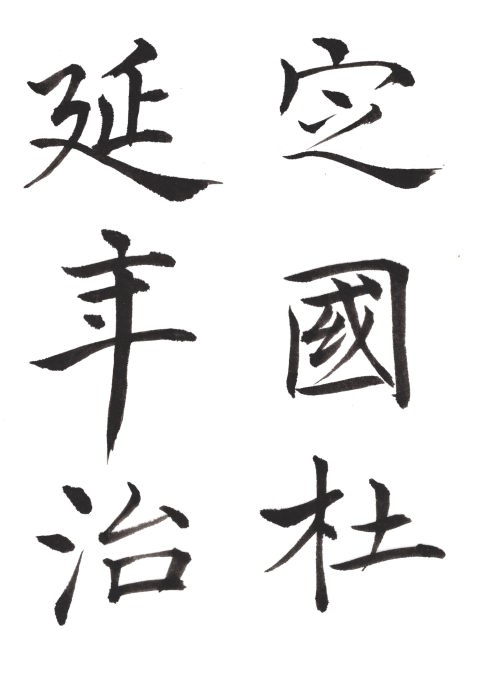 定國杜
延年治